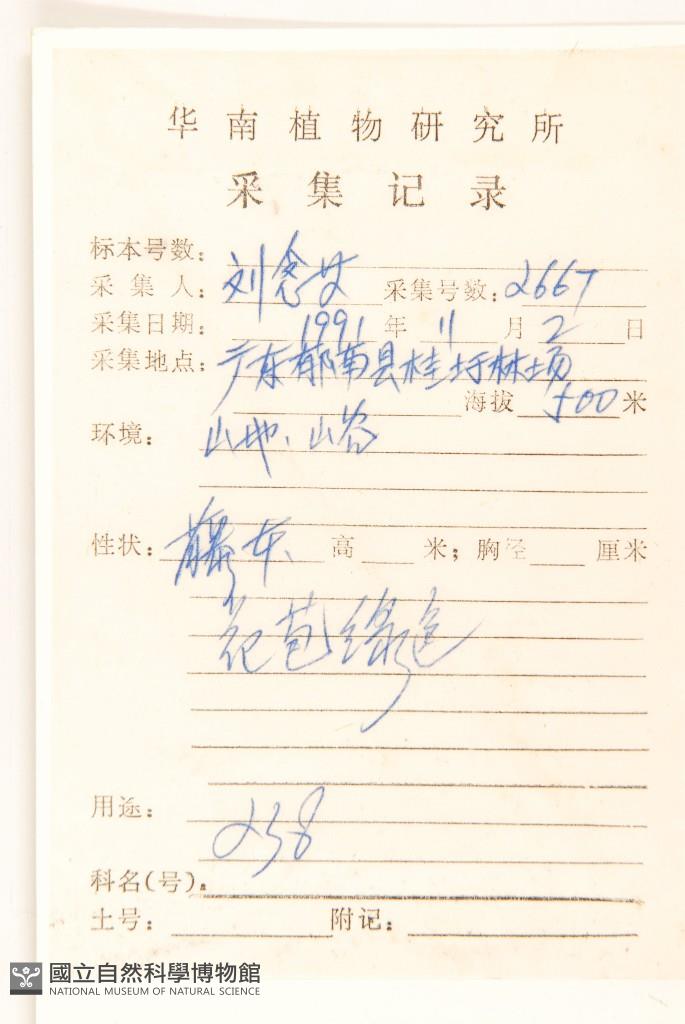 华南植物研究所
采集记录
标本号数:
采集人: 刘念 采集号数: 2667
采集日期: 1991年11月2日
采集地点: 广东郁南县桂圩林场
海拔 500米
环境: 山地、山谷
性状: 藤本 高 米; 胸径 厘米
花苞绿色
用途:
238
科名(号):
土号: 附记:
國立自然科學博物館
NATIONAL MUSEUM OF NATURAL SCIENCE